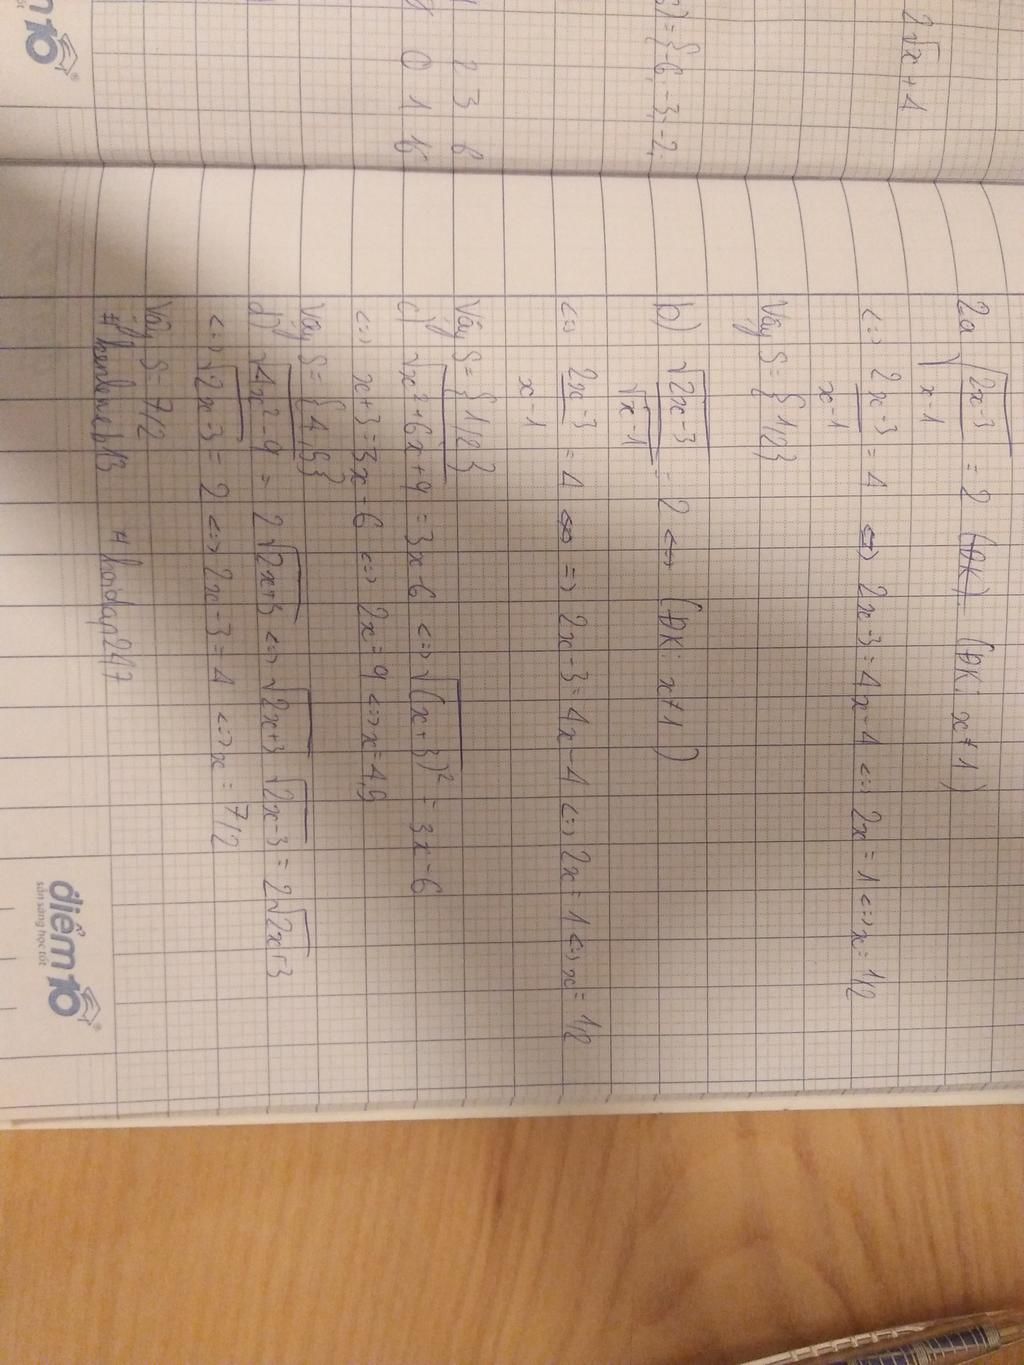 2√x + 1
) = {-6, -3, -2,
2 3 6
0 1 16
2a √(2x-3 / x-1) = 2 (ĐK) (ĐK: x ≠ 1)
<=> 2x-3 / x-1 = 4 <=> 2x-3 = 4x-4 <=> 2x = 1 <=> x = 1/2
Vậy S = {1/2}
b) √2x-3 / √x-1 = 2 <=> (ĐK: x ≠ 1)
<=> 2x-3 / x-1 = 4 <=> => 2x-3 = 4x-4 <=> 2x = 1 <=> x = 1/2
Vậy S = {1/2}
c) √x²+6x+9 = 3x-6 <=> √(x+3)² = 3x-6
<=> x+3 = 3x-6 <=> 2x = 9 <=> x = 4,5
Vậy S = {4,5}
d) √4x²-9 = 2√2x+3 <=> √2x+3 √2x-3 = 2√2x+3
<=> √2x-3 = 2 <=> 2x-3 = 4 <=> x = 7/2
Vậy S = 7/2
#hoidap247
điểm10
sẵn sàng học tốt